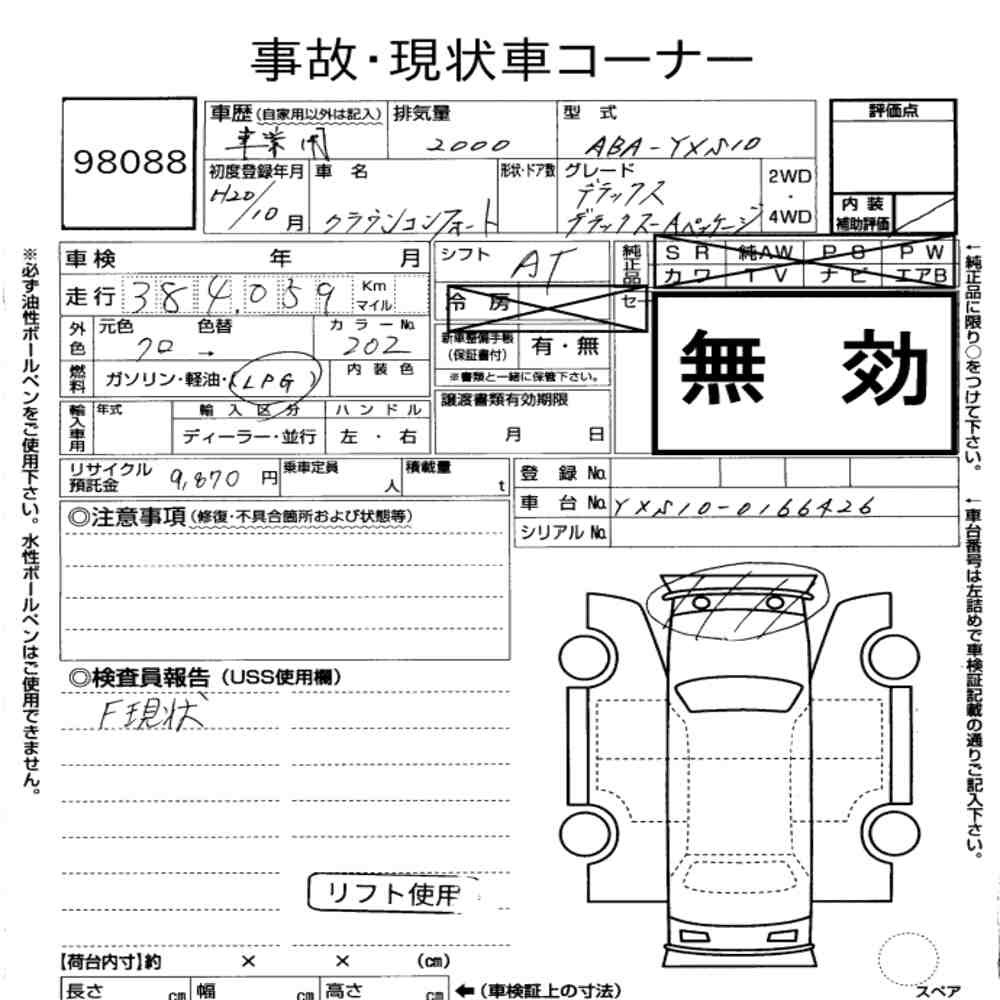 事故・現状車コーナー
98088
車歴(自家用以外は記入)
排気量
型 式
評価点
事業用
2000
ABA-YXS10
初度登録年月
車 名
形状・ドア数
グレード
2WD
・
4WD
H20/10月
クラウンコンフォート
デラックス
デラックスーAパッケージ
内 装
補助評価
車検 年 月
シフト
AT
純正品
セ
SR
純AW
PS
PW
カワ
TV
ナビ
エアB
走行 384,059 Km
マイル
冷 房
外色
元色 色替
カラーNo.
クロ →
202
新車整備手帳
(保証書付)
有・無
※書類と一緒に保管下さい。
無 効
燃料
ガソリン・軽油・(LPG)
内 装 色
譲渡書類有効期限
月 日
輸入車用
年式
輸 入 区 分
ハ ン ド ル
ディーラー・並行
左 ・ 右
リサイクル
預託金
9,870 円
乗車定員
人
積載量
t
登 録 No.
車 台 No.
YXS10-0166426
シリアル No.
◎注意事項(修復・不具合箇所および状態等)
◎検査員報告(USS使用欄)
F現状
リフト使用
【荷台内寸】約 × × (cm)
長さ cm
幅 cm
高さ cm
←(車検証上の寸法)
スペア
※必ず油性ボールペンをご使用下さい。水性ボールペンはご使用できません。
←純正品に限り○をつけて下さい。
←車台番号は左詰めで車検証記載の通りご記入下さい。